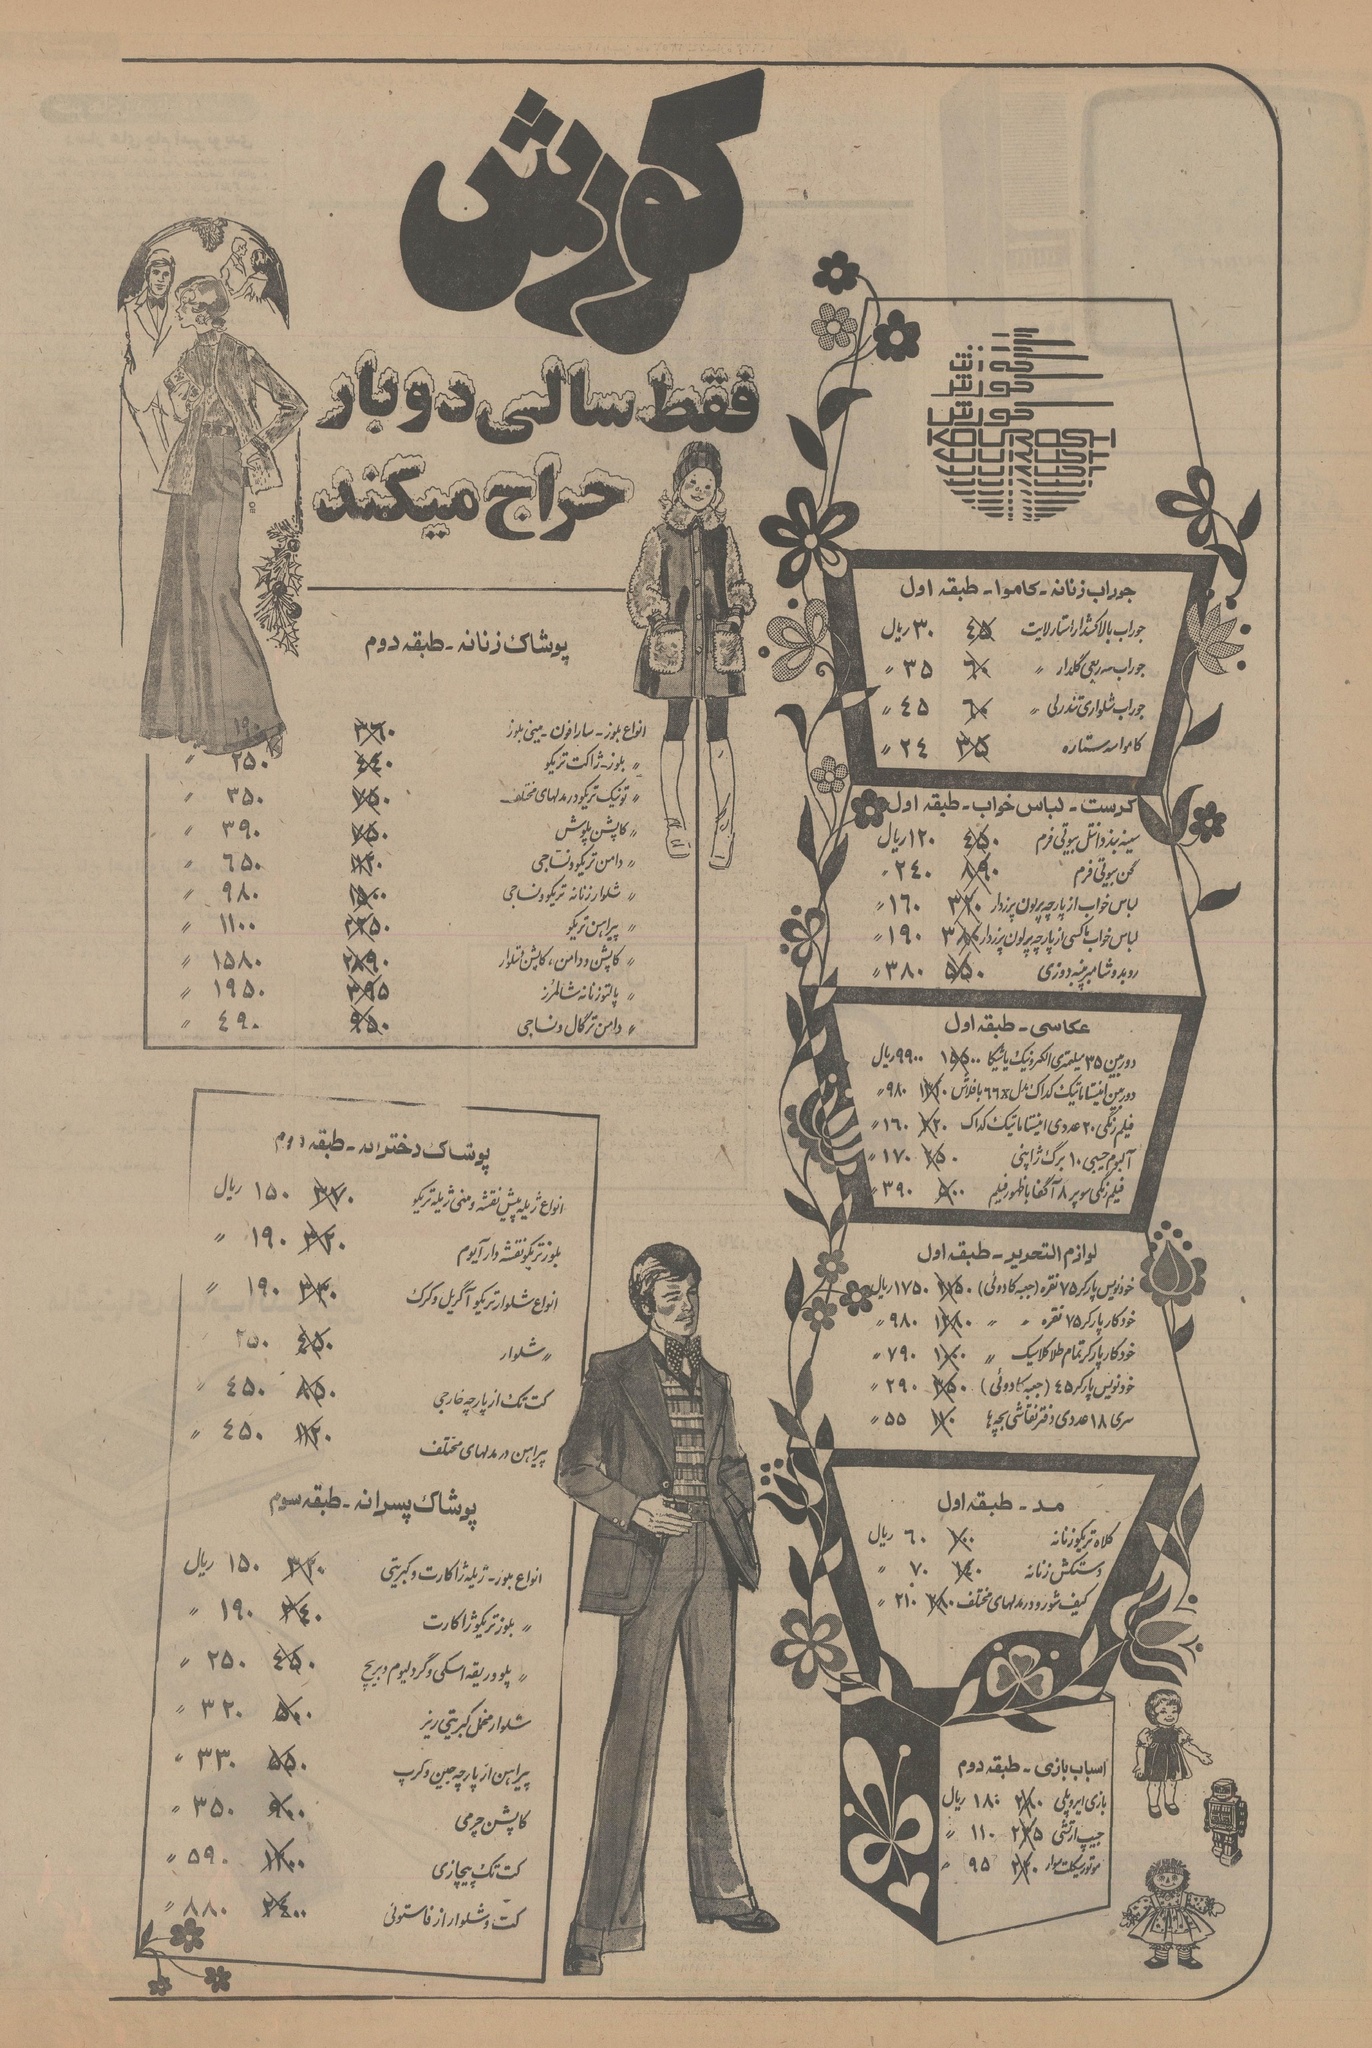 کورش
فقط سالی دوبار
حراج میکند
KOUROSH
جوراب زنانه - کاموا - طبقه اول
جوراب بالا کشدار استارلایت ۴۵ ۳۰ ریال
جوراب سه ربعی گلدار 〃 ۶۰ ۳۵ 〃
جوراب شلواری تندرلی 〃 ۶۰ ۴۵ 〃
کاموا سه ستاره ۳۵ ۲۴ 〃
کرست - لباس خواب - طبقه اول
سینه بند دانتل بیوتی فرم ۴۵۰ ۱۲۰ ریال
گن بیوتی فرم ۸۹۰ ۲۴۰ 〃
لباس خواب از پارچه پرلون پرزدار ۳۲۰ ۱۶۰ 〃
لباس خواب ماکسی از پارچه پرلون پرزدار ۳۸۰ ۱۹۰ 〃
روبدوشامبر پنبه دوزی ۵۵۰ ۳۸۰ 〃
عکاسی - طبقه اول
دوربین ۳۵ میلمتری الکترونیک یاشیکا ۱۵۵۰۰ ۹۹۰۰ ریال
دوربین اینستاماتیک کداک مدل ۶۶x با فلاش ۱۳۲۰ ۹۸۰ 〃
فیلم رنگی ۲۰ عددی اینستاماتیک کداک ۲۲۰ ۱۶۰ 〃
آلبوم جیبی ۱۰ برگ ژاپنی ۲۵۰ ۱۷۰ 〃
فیلم رنگی سوپر ۸ آگفا با ظهور فیلم ۵۰۰ ۳۹۰ 〃
لوازم التحریر - طبقه اول
خودنویس پارکر ۷۵ نقره (جعبه کادوئی) ۱۷۵۰ ریال
خودکار پارکر ۷۵ نقره 〃 〃 ۱۳۸۰ ۹۸۰ 〃
خودکار پارکر تمام طلا کلاسیک 〃 ۷۹۰ 〃
خودنویس پارکر ۴۵ (جعبه کادوئی) ۳۵۰ ۲۹۰ 〃
سری ۱۸ عددی دفتر نقاشی بچه ها ۵۵ 〃
مد - طبقه اول
کلاه تریکو زنانه ۱۰۰ ۶۰ ریال
دستکش زنانه ۱۴۰ ۷۰ 〃
کیف شورو در مدلهای مختلف ۳۸۰ ۲۱۰ 〃
اسباب بازی - طبقه دوم
بازی ایروپلی ۲۸۰ ۱۸۰ ریال
جیپ ارتشی ۲۳۵ ۱۱۰ 〃
موتورسیکلت سوار ۲۲۰ ۹۵ 〃
پوشاک زنانه - طبقه دوم
انواع بلوز - سارافون - مینی بلوز ۳۶۰ ۱۹۰
〃 بلوز - ژاکت تریکو ۴۴۰ ۲۵۰ 〃
〃 تونیک تریکو در مدلهای مختلف ۷۵۰ ۳۵۰ 〃
〃 کاپشن پلوش ۷۵۰ ۳۹۰ 〃
〃 دامن تریکو و نساجی ۱۱۲۰ ۶۵۰ 〃
〃 شلوار زنانه تریکو و نساجی ۱۵۰۰ ۹۸۰ 〃
〃 پیراهن تریکو ۲۲۵۰ ۱۱۰۰ 〃
〃 کاپشن و دامن، کاپشن شلوار ۲۸۹۰ ۱۵۸۰ 〃
〃 پالتو زنانه شالمرز ۱۹۵۰ 〃
〃 دامن ترگال و نساجی ۹۵۰ ۴۹۰ 〃
پوشاک دخترانه - طبقه دوم
انواع ژیله پیش نقشه و مینی ژیله تریکو ۳۷۰ ۱۵۰ ریال
بلوز تریکو نقشه دار آلبوم ۳۲۰ ۱۹۰ 〃
انواع شلوار تریکو آکریل و کرک ۳۳۰ ۱۹۰ 〃
〃 شلوار ۴۵۰ ۲۵۰
کت تک از پارچه خارجی ۸۵۰ ۴۵۰ 〃
پیراهن در مدلهای مختلف ۱۱۲۰ ۴۵۰ 〃
پوشاک پسرانه - طبقه سوم
انواع بلوز - ژیله ژاکارت و کبریتی ۳۲۰ ۱۵۰ ریال
〃 بلوز تریکو ژاکارت ۳۴۰ ۱۹۰ 〃
〃 پلوور یقه اسکی و گرد لیوم و بریج ۴۵۰ ۲۵۰ 〃
شلوار مخمل کبریتی ریز ۵۰۰ ۳۲۰ 〃
پیراهن از پارچه جین و کرپ ۵۵۰ ۳۳۰ 〃
کاپشن چرمی ۹۰۰ ۳۵۰ 〃
کت تک پیچازی ۱۲۰۰ ۵۹۰ 〃
کت و شلوار از فاستونی ۲۴۰۰ ۸۸۰ 〃